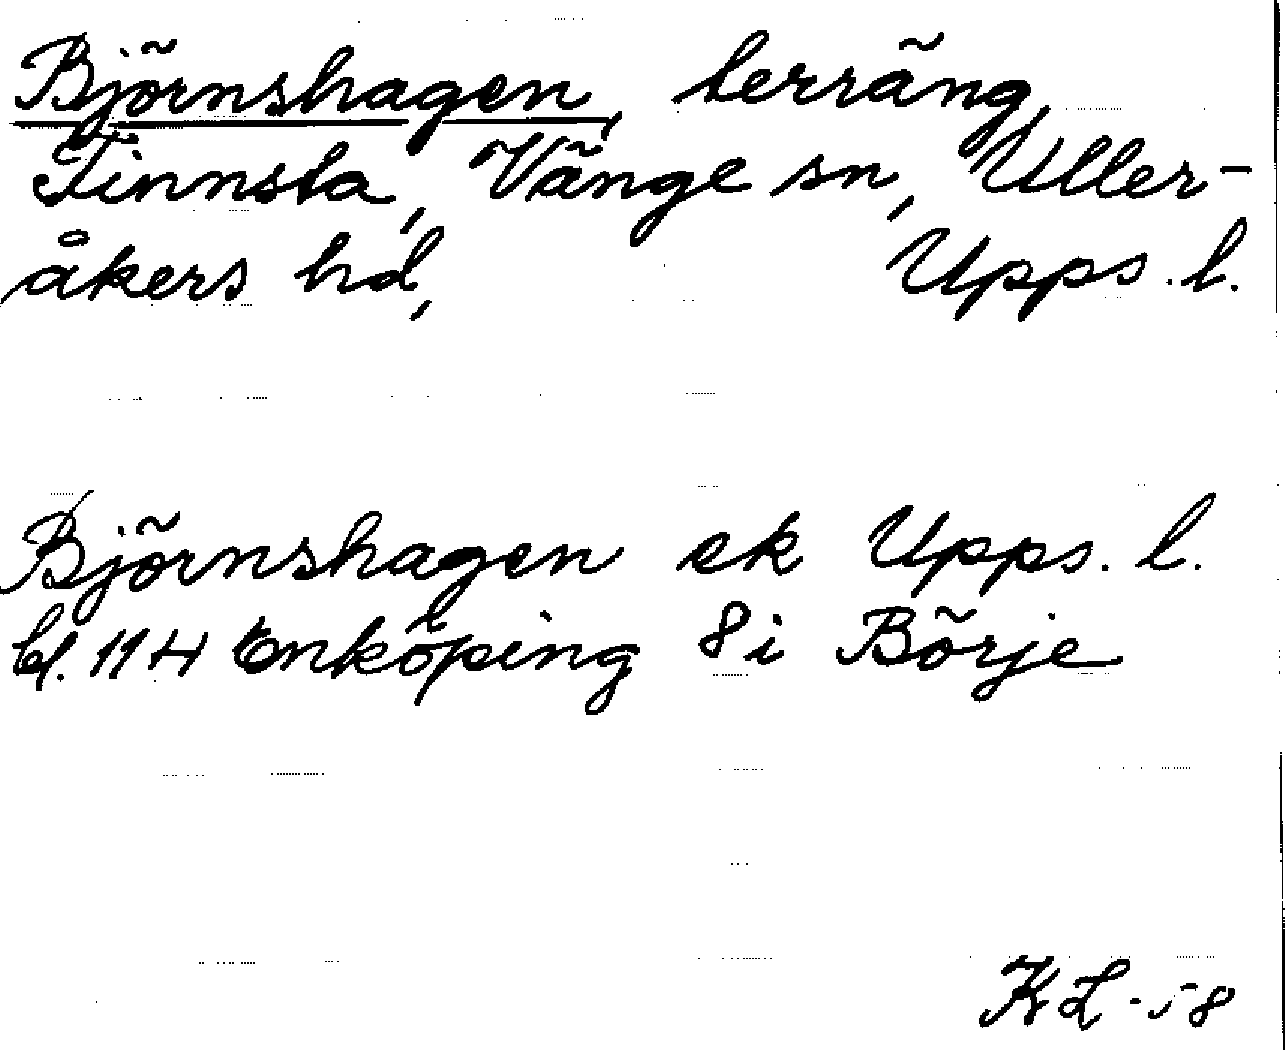 Björnshagen, terräng,
Finnsta, Vänge sn, Uller-
åkers hd, Upps. l.
Björnshagen ek Upps. l.
bl. 114 Enköping 8i Börje
KL -58